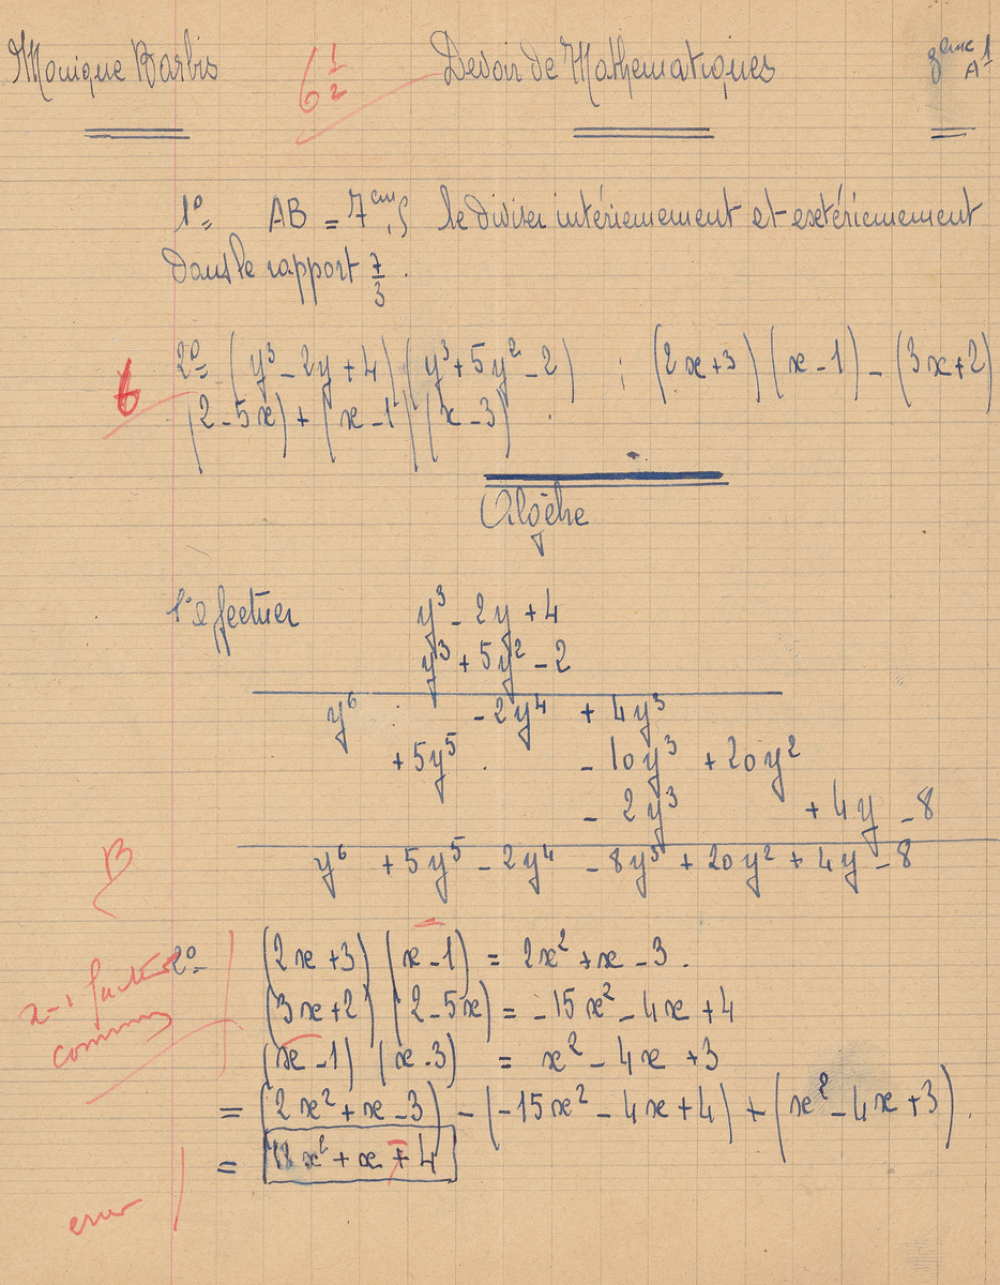 Monique Barbis 6 1/2 Devoir de Mathematiques 3ème A1
1° = AB = 7 cm,5 le diviser intérieurement et extérieurement
dans le rapport 7/3.
2° = (y³ - 2y + 4)(y³ + 5y² - 2) ; (2x+3)(x-1) - (3x+2)
6 (2-5x) + (x-1)(x-3).
Algèbre
1° effectuer y³ - 2y + 4
y³ + 5y² - 2
y⁶ - 2y⁴ + 4y³
+ 5y⁵ - 10y³ + 20y²
- 2y³ + 4y - 8
y⁶ + 5y⁵ - 2y⁴ - 8y³ + 20y² + 4y - 8
B
2° (2x+3)(x-1) = 2x² + x - 3.
x-1 facteur (3x+2)(2-5x) = -15x² - 4x + 4
commun (x-1)(x-3) = x² - 4x + 3
= (2x² + x - 3) - (-15x² - 4x + 4) + (x² - 4x + 3).
= 18x² + x - 4
erreur